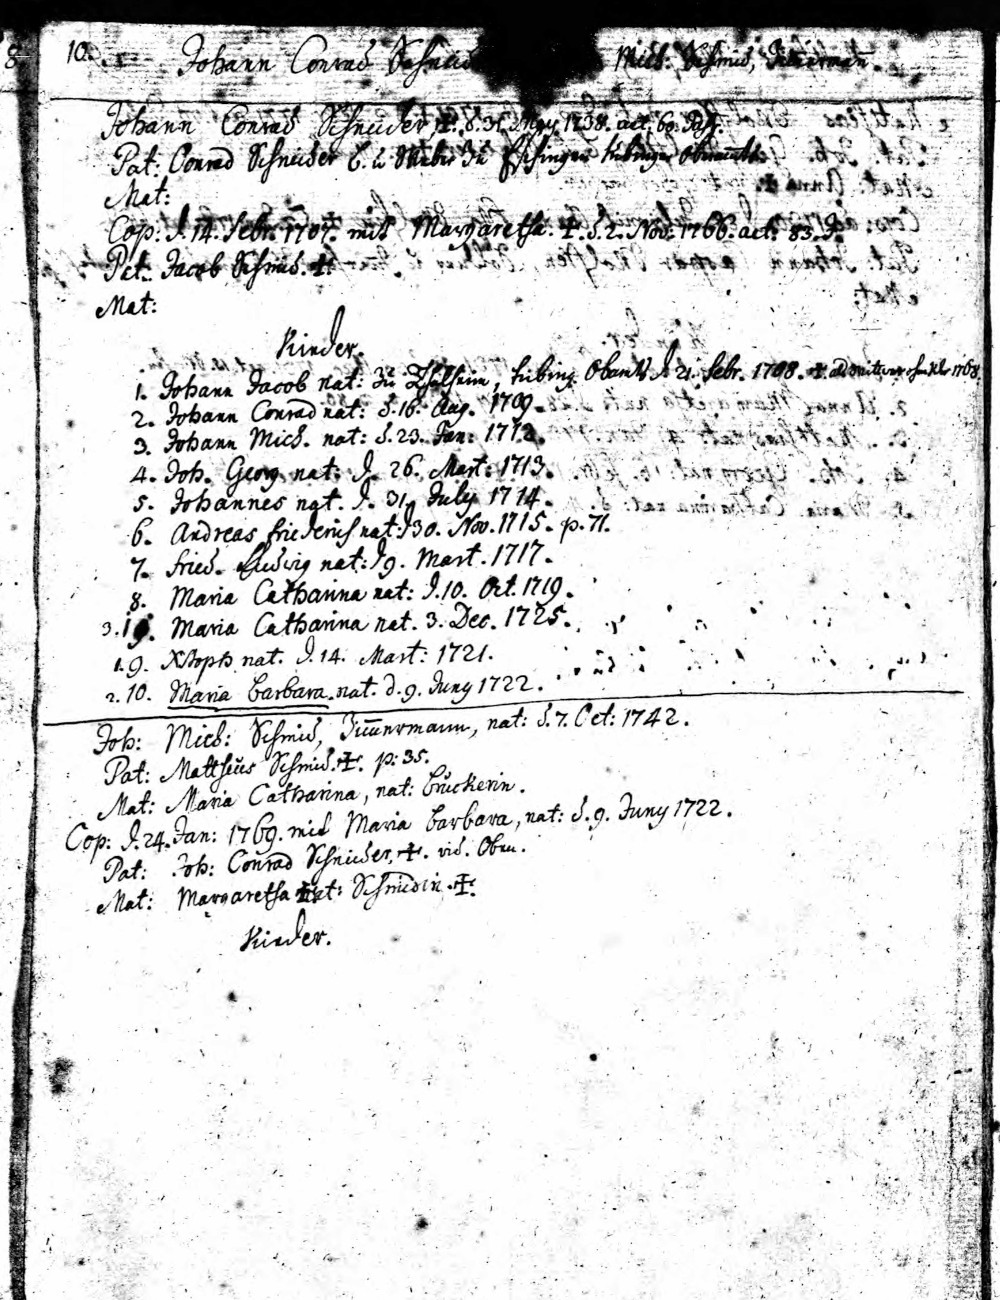 10. Johann Conrad Schneid Mich: Schmid, Zimerman.
Johann Conrad Schneider, ☩. d. 31. May 1738. aet. 60. Jahr.
Pat: Conrad Schneider B. u. Weber zu Tübinger Oberambts
Mat:
Cop: d. 14. Febr. 1707. mit Margaretha. ☩. d. 2. Nov. 1766. aet. 83. J.
Pat: Jacob Schmid. ☩.
Mat:
Kinder.
1. Johann Jacob nat: zu Tübing. Obamts d. 21. Febr. 1708. ☩.
2. Johann Conrad nat: d. 16. Aug. 1709.
3. Johann Mich. nat: d. 23. Jan: 1712.
4. Joh. Georg nat: d. 26. Mart: 1713.
5. Johannes nat. d. 31. July 1714.
6. Andreas Friederich nat: d 30. Nov. 1715. p. 71.
7. Fried. Ludwig nat: d 9. Mart. 1717.
8. Maria Catharina nat: d. 10. Oct. 1719.
3. Maria Catharina nat. 3. Dec. 1725.
1. 9. Xstoph nat. d. 14. Mart: 1721.
2. 10. Maria Barbara nat. d. 9. Juny 1722.
Joh: Mich: Schmid, Zim̄ermann, nat: d. 7. Oct: 1742.
Pat: Mattheus Schmid. ☩. p: 35.
Mat: Maria Catharina, nat: Bruckerin.
Cop: d. 24. Jan: 1769. mit Maria Barbara, nat: d. 9. Juny 1722.
Pat: Joh: Conrad Schneider, ☩. vid. Oben.
Mat: Margaretha nat: Schmidin. ☩.
Kinder.